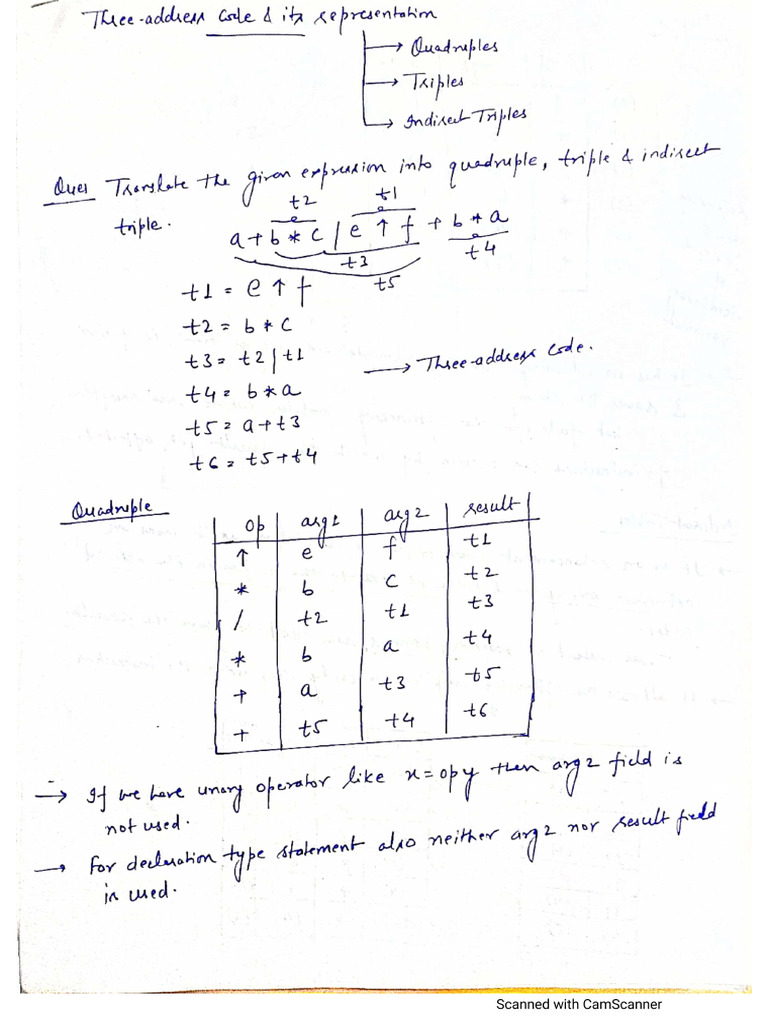 Three-address Code & its representation
→ Quadruples
→ Triples
→ Indirect Triples
Ques Translate the given expression into quadruple, triple & indirect
triple.
t2 t1
a + b * c / e ↑ f + b * a
t3 t4
t5
t1 = e ↑ f
t2 = b * c
t3 = t2 / t1 → Three-address Code.
t4 = b * a
t5 = a + t3
t6 = t5 + t4
Quadruple
op arg1 arg2 result
↑ e f t1
* b c t2
/ t2 t1 t3
* b a t4
+ a t3 t5
+ t5 t4 t6
→ If we have unary operator like x = op y then arg2 field is
not used.
→ For declaration type statement also neither arg2 nor result field
is used.
Scanned with CamScanner